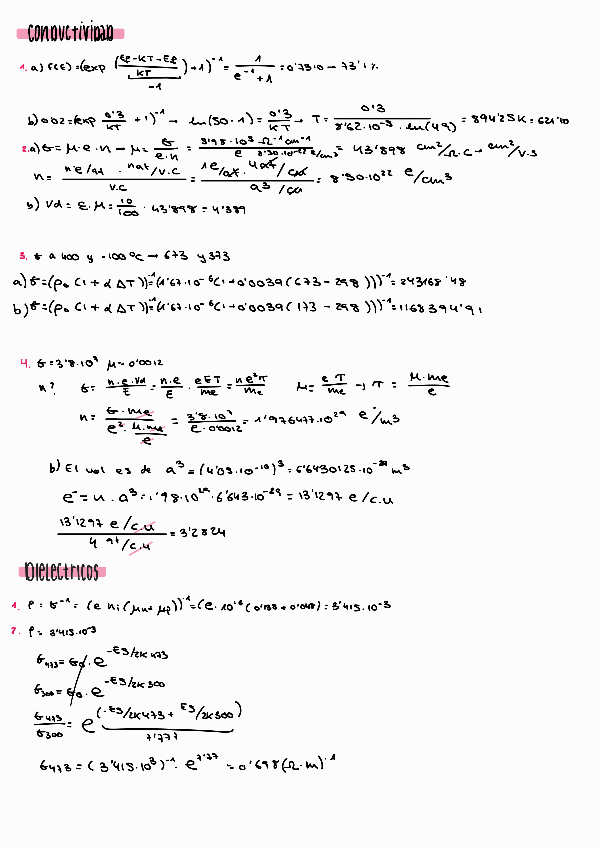 Conductividad
1. a) F(E) = (exp((Ef-KT-Ef)/KT) + 1)^-1 = 1/(e^-1 + 1) = 0'7310 → 73'1 %
-1
b) 0'02 = (exp 0'3/KT + 1)^-1 → ln(50-1) = 0'3/KT → T = 0'3/(8'62·10^-5 · ln(49)) = 894'25K = 621'10
2. a) σ = μ·e·n → μ = σ/(e·n) = 3'98·10^3 Ω^-1 cm^-1 / (e 8'30·10^22 e/cm^3) = 43'898 cm^2/Ω·C → cm^2/V·s
n = (nºe/at · nat/v.c)/v.c = (1e/at · 4at/cu)/(a^3/cu) = 8'30·10^22 e/cm^3
b) Vd = E·μ = 10/100 · 43'898 = 4'389
3. σ a 400 y -100ºC → 673 y 373
a) σ = (ρ0 (1 + α ΔT))^-1 = (1'67·10^-6 (1 + 0'0039 (673 - 298)))^-1 = 243168'48
b) σ = (ρ0 (1 + α ΔT))^-1 = (1'67·10^-6 (1 + 0'0039 (173 - 298)))^-1 = 1168394'91
4. σ = 3'8·10^7 μ = 0'0012
n? σ = n·e·Vd/E = n·e/E · eEτ/me = ne^2τ/me μ = eτ/me → τ = μ·me/e
n = σ·me/(e^2 · μ·me/e) = 3'8·10^7/(e·0'0012) = 1'976477·10^29 e^-/m^3
b) El vol es de a^3 = (4'05·10^-10)^3 = 6'6430125·10^-29 m^3
e^- = n·a^3 = 1'98·10^29 · 6'643·10^-29 = 13'1297 e/c.u
(13'1297 e/c.u)/(4 at/c.u) = 3'2824
Dieléctricos
1. ρ = σ^-1 = (e ni (μn + μp))^-1 = (e · 10^16 (0'135 + 0'048)) = 3'415·10^-3
2. ρ = 3'415·10^-3
σ473 = σ0 · e^(-Eg/2K473)
σ300 = σ0 · e^(-Eg/2K300)
σ473/σ300 = e^(-Eg/2K473 + Eg/2K300)
7'777
σ473 = (3'415·10^3)^-1 · e^7'77 = 0'698 (Ω·m)^-1